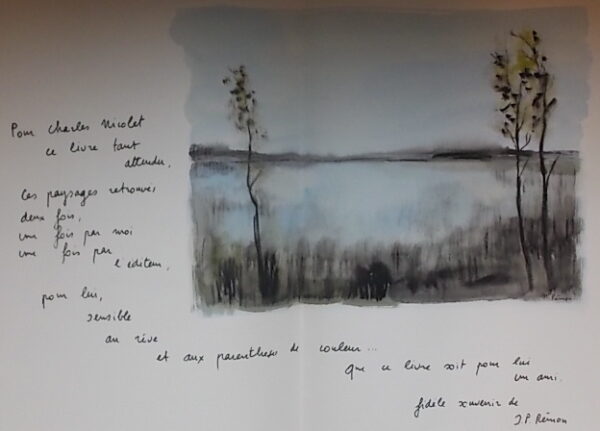 Pour Charles Nicolet
ce livre tant
attendu,
Ces paysages retrouvés
deux fois,
une fois par moi
une fois par
l'editeur,
pour lui,
sensible
au rêve
et aux parenthèses de couleur...
Que ce livre soit pour lui
un ami.
fidèle souvenir de
J.P. Rémon